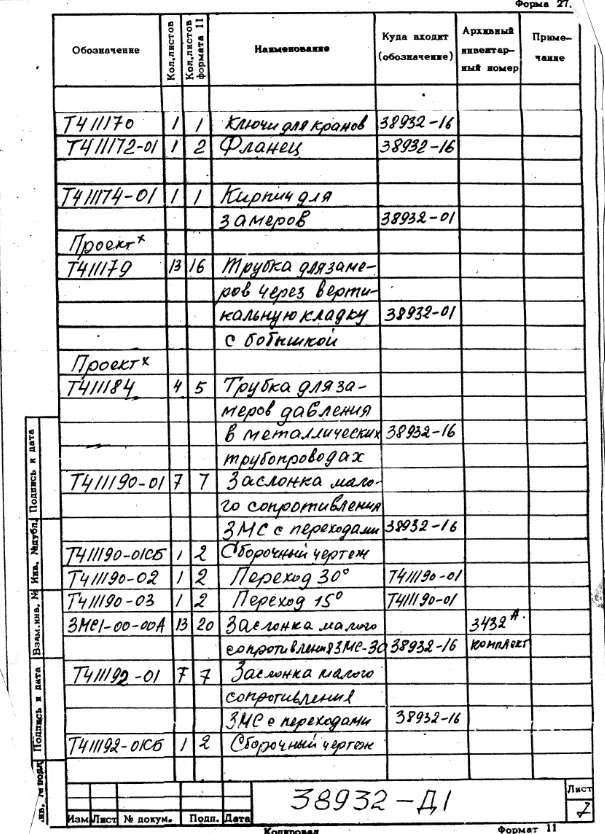 Форма 27.
Обозначение Кол.листов Кол.листов формата 11 Наименование Куда входит (обозначение) Архивный инвентарный номер Примечание
Т411170 1 1 Ключи для кранов 38932-16
Т411172-01 1 2 Фланец 38932-16
Т411174-01 1 1 Кирпич для
замеров 38932-01
Проект x
Т411179 13 16 Трубка для заме-
ров через верти-
кальную кладку 38932-01
с бобышкой
Проект x
Т411184 4 5 Трубка для за-
меров давления
в металлических 38932-16
трубопроводах
Т411190-01 7 7 Заслонка мало-
го сопротивления
ЗМС с переходами 38932-16
Т411190-01СБ 1 2 Сборочный чертеж
Т411190-02 1 2 Переход 30° Т411190-01
Т411190-03 1 2 Переход 15° Т411190-01
ЗМС1-00-00А 13 20 Заслонка малого 3432А.
сопротивления ЗМС-30 38932-16 комплект
Т411192-01 7 7 Заслонка малого
сопротивления
ЗМС с переходами 38932-16
Т411192-01СБ 1 2 Сборочный чертеж
Подпись и дата
Инв. №дубл.
Взам.инв. №
Подпись и дата
Инв. № подл
38932-Д1
Лист
2
Изм Лист № докум. Подп. Дата
Копировал Формат 11